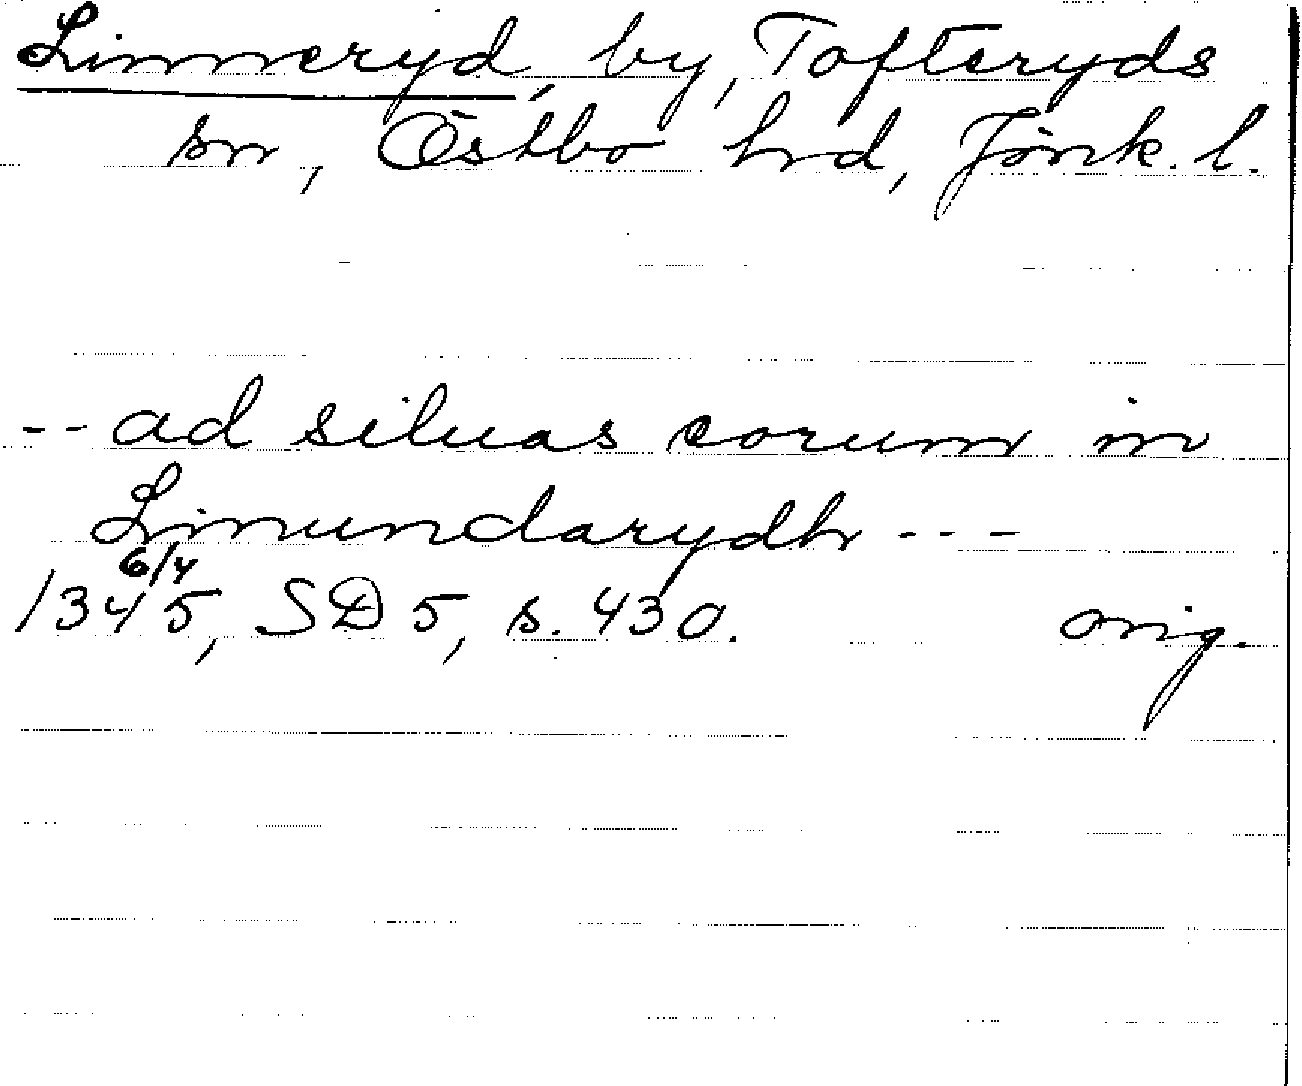 Linneryd, by, Tofteryds
sn, Östbo hrd, Jönk. l.
-- ad siluas eorum in
Linundarydh ---
6/4
1345, SD 5, s. 430. orig.